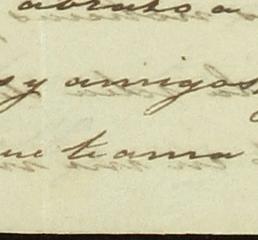 abrazo a
s y amigos,
ue te ama